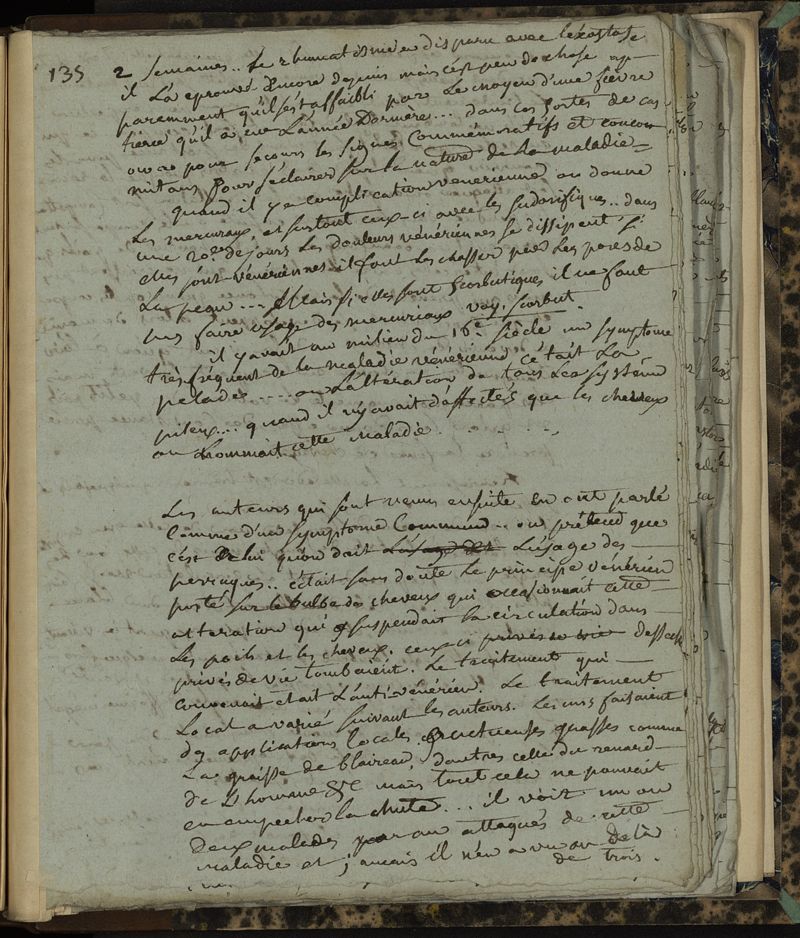 135
2 semaines.. le rhumatisme a disparu avec l'exostose
il l'a eprouvé encore depuis mais c'est peu de chose ap-
paremment qu'il s'est affaibli par le moyen d'une fièvre
tierce qu'il a eu l'année dernière... dans ces sortes de cas
on a pour secours les signes commémoratifs et concom
mitans pour s'éclairer sur la nature de la maladie -
quand il y a complication venerienne on donne
les mercuriaux et surtout ceux-ci avec les sudorifiques.. dans
une 20.ne de jours les douleurs vénériennes se dissipent si
elles sont vénériennes il faut les chasser par les pores de
la peau... Mais si elles sont scorbutiques il ne faut
pas faire usage des mercuriaux voy. scorbut.
il y avait au milieu du 16e siècle un symptome
très fréquent de la maladie vénérienne c'était la
pelade.... ou l'altération de tous les système
pileux... quand il n'y avait d'affectés que les cheveux
on nommait cette maladie . . . . . .
Les auteurs qui sont venus ensuite en ont parlé
comme d'un symptome commun.. on prétend que
c'est de lui qu'on doit l'usage des l'usage des -
perruques.. c'était sans doute le principe vénérien
porté sur le bulbe des cheveux qui occasionnait cette
alteration qui suspendait la circulation dans
les poils et les cheveux. ceux ci privés de vie dessechés
privés de vie tombaient. Le traitement qui -
convenait etait l'antivénérien. Le traitement
local a varié suivant les auteurs. Les uns faisaient
des applications locales onctueuses grasses comme
la graisse de blaireau, d'autres celle du renard -
de l'homme &c mais tout cela ne pouvait
en empecher la chute... il voit un ou
deux malades par an attaqués de cette
maladie et jamais il n'en a vu au delà
de trois.